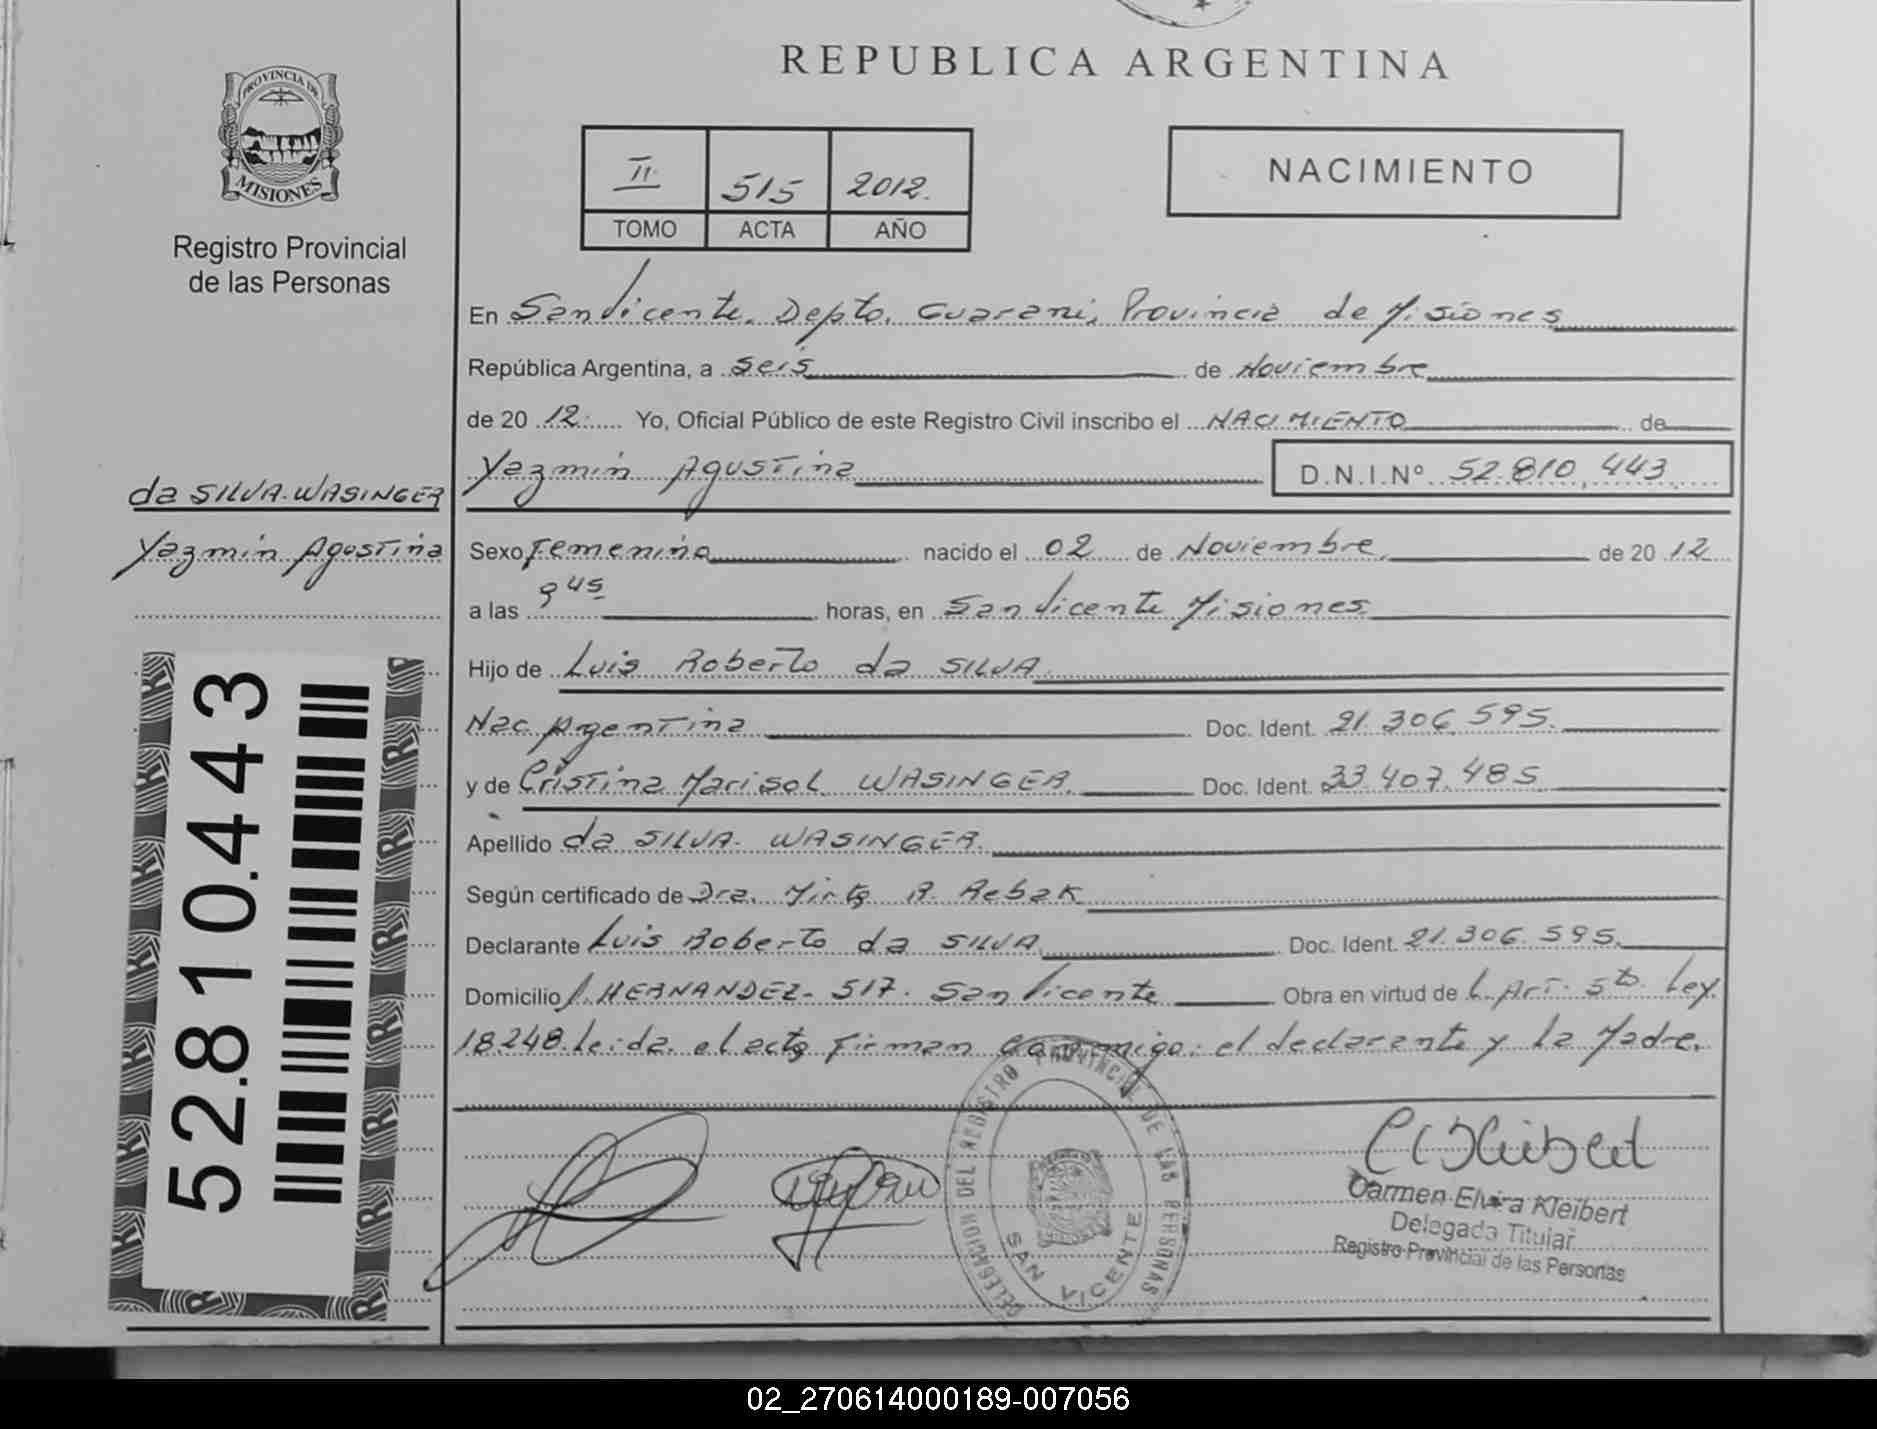 REPUBLICA ARGENTINA
PROVINCIA DE
MISIONES
Registro Provincial
de las Personas
II 515 2012.
TOMO ACTA AÑO
NACIMIENTO
En San Vicente, Depto. Guarani, Provincia de Misiones
República Argentina, a seis de Noviembre
de 20 12. Yo, Oficial Público de este Registro Civil inscribo el NACIMIENTO de
Yazmin Agustina D.N.I.Nº 52.810.443
da SILVA.WASINGER
Yazmin Agustina
Sexo Femenino nacido el 02 de Noviembre. de 20 12
a las 9 45 horas, en San Vicente Misiones.
Hijo de Luis Roberto da SILVA.
Nac Argentina Doc. Ident. 21.306.595.
y de Cristina Marisol WASINGER. Doc. Ident. 33.407.485
Apellido da SILVA. WASINGER.
Según certificado de Dra. Mirta R. Rebak
Declarante Luis Roberto da SILVA. Doc. Ident. 21.306.595.
Domicilio J. HERNANDEZ- 517. San Vicente Obra en virtud de L. Art. 5to. Ley.
18.248.leida el acta Firman conmigo: el declarante y la Madre.
52.810.443
DELEGACION DEL REGISTRO PROVINCIAL DE LAS PERSONAS
SAN VICENTE
Carmen Elvira Kleibert
Delegada Titular
Registro Provincial de las Personas
02_270614000189-007056